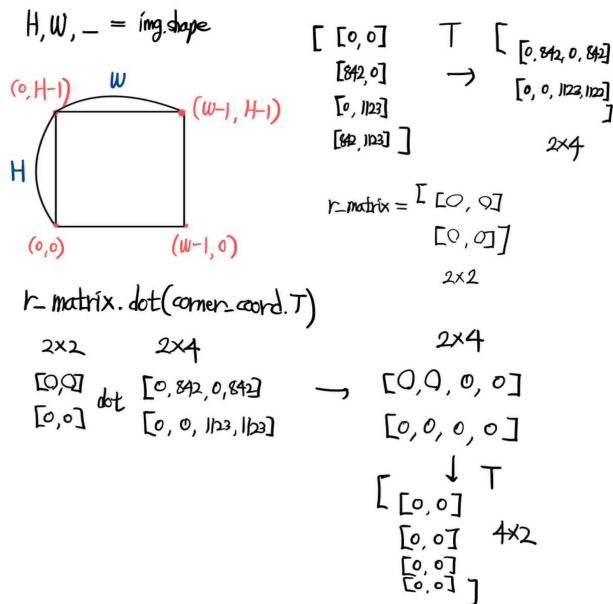 H, W, _ = img.shape
(0, H-1)
W
(W-1, H-1)
H
(0,0)
(W-1,0)
[ [0,0]
[842,0]
[0, 1123]
[842, 1123] ]
T
→
[
[0, 842, 0, 842]
[0, 0, 1123, 1123]
]
2×4
r_matrix = [ [0, 0]
[0, 0] ]
2×2
r_matrix.dot(corner_coord.T)
2×2 2×4 2×4
[0,0] dot [0, 842, 0, 842] → [0, 0, 0, 0]
[0,0] [0, 0, 1123, 1123] [0, 0, 0, 0]
↓ T
[ [0, 0]
[0, 0] 4×2
[0, 0]
[0, 0] ]